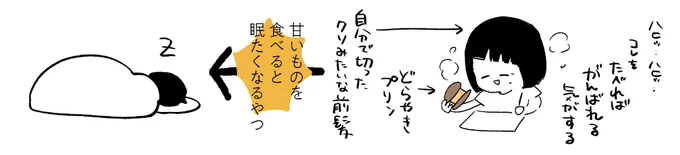 ハヒッ…ハヒ…
コレを
たべれば
がんばれる
気がする
どらやき
プリン
自分で切った
クソみたいな前髪
甘いものを
食べると
眠たくなるやつ
Z